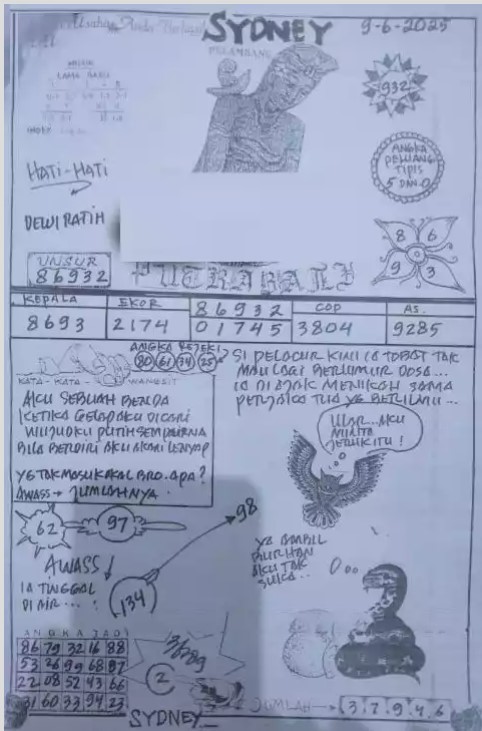 SYDNEY
9-6-2025
PELAMBANG
LAMA
932
HATI-HATI
ANGKA
PELUANG
TIPIS
5 DAN 0
DEWI RATIH
8 6
9 3
UNSUR
86932
PUTRABALI
KEPALA EKOR 86932 COP AS.
8693 2174 01745 3804 9285
ANGKA REJEKI
80 61 34 25
KATA - KATA WANGSIT
SI PELACUR KINI IA TOBAT TAK
MAU LAGI BERLUMUR DOSA...
IA DI AJAK MENIKAH SAMA
PERJAKA TUA YG BERILMU...
AKU SEBUAH BENDA
KETIKA GELAP AKU DICARI
WUJUDKU PUTIH SEMPURNA
BILA BERDIRI AKU AKAN LENYAP
YG TAK MASUK AKAL BRO. APA?
AWASS → JUMLAHNYA.
ULAR...AKU
MINTA
JERUK ITU!
62
97
98
AWASS
IA TINGGAL
DI AIR...
134
YA AMBIL
AKU TAK
SUKA...
ANGKA JADI
86 79 32 16 88
53 26 99 68 87
22 08 52 43 66
31 60 33 94 23
2
JUMLAH → 3.7.9.4.6
SYDNEY